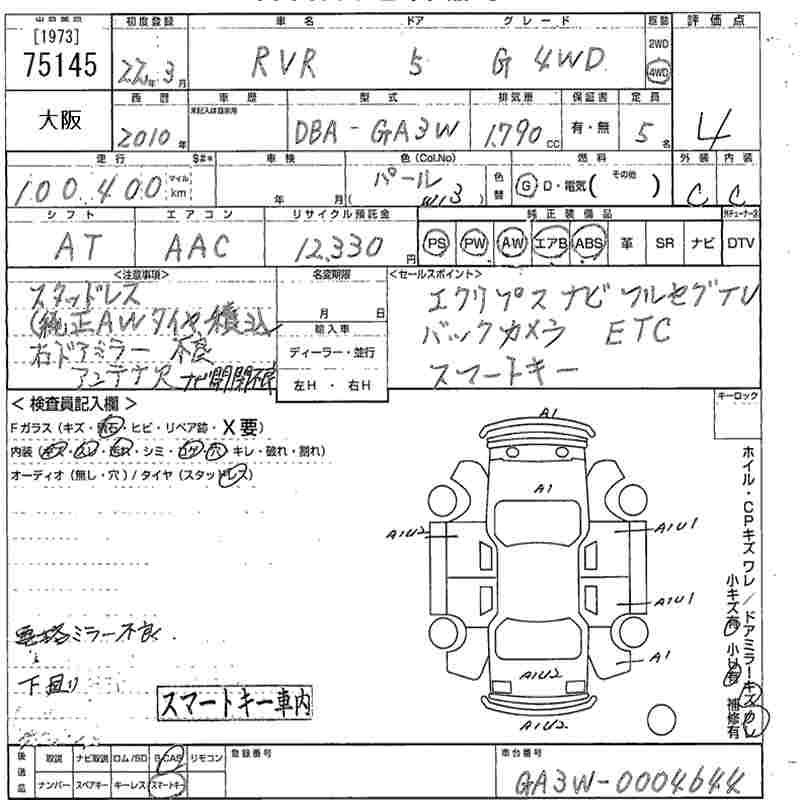 [1973]
75145
大阪
初度登録 車名 ドア グレード 駆動 評価点
22年3月 RVR 5 G 4WD 2WD 4WD
西暦 車歴 型式 排気量 保証書 定員
2010年 DBA-GA3W 1,790cc 有・無 5名 4
走行 車検 色(Col.No) 燃料 外装 内装
100,400 マイル km 年 月 パール W13 色替 G D・電気( その他 ) C C
シフト エアコン リサイクル預託金 純正装備品
AT AAC 12,330円 PS PW AW エアB ABS 革 SR ナビ DTV
<注意事項> 名変期限 <セールスポイント>
スタッドレス
(純正AWタイヤ積込)
右ドアミラー 不良
アンテナ穴 ナビ開閉不良
月 日
輸入車
ディーラー・並行
左H・右H
エクリプス ナビ フルセグTV
バックカメラ ETC
スマートキー
<検査員記入欄>
Fガラス(キズ・飛石・ヒビ・リペア跡・X要)
内装(キズ・スレ・汚れ・シミ・コゲ・穴 キレ・破れ・割れ)
オーディオ(無し・穴)/タイヤ(スタッドレス)
キーロック
A1
A1
A1U2
A1U1
A1U1
A1
A1U2
A1U2
ホイル・CPキズ ワレ/ドアミラーキズ ワレ
小キズ有 小凹有 補修有
ミラー不良.
下廻り
スマートキー車内
後送品 取説 ナビ取説 ロム/SD B-CAS リモコン 登録番号 車台番号
ナンバー スペアキー キーレス スマートキー GA3W-0004644